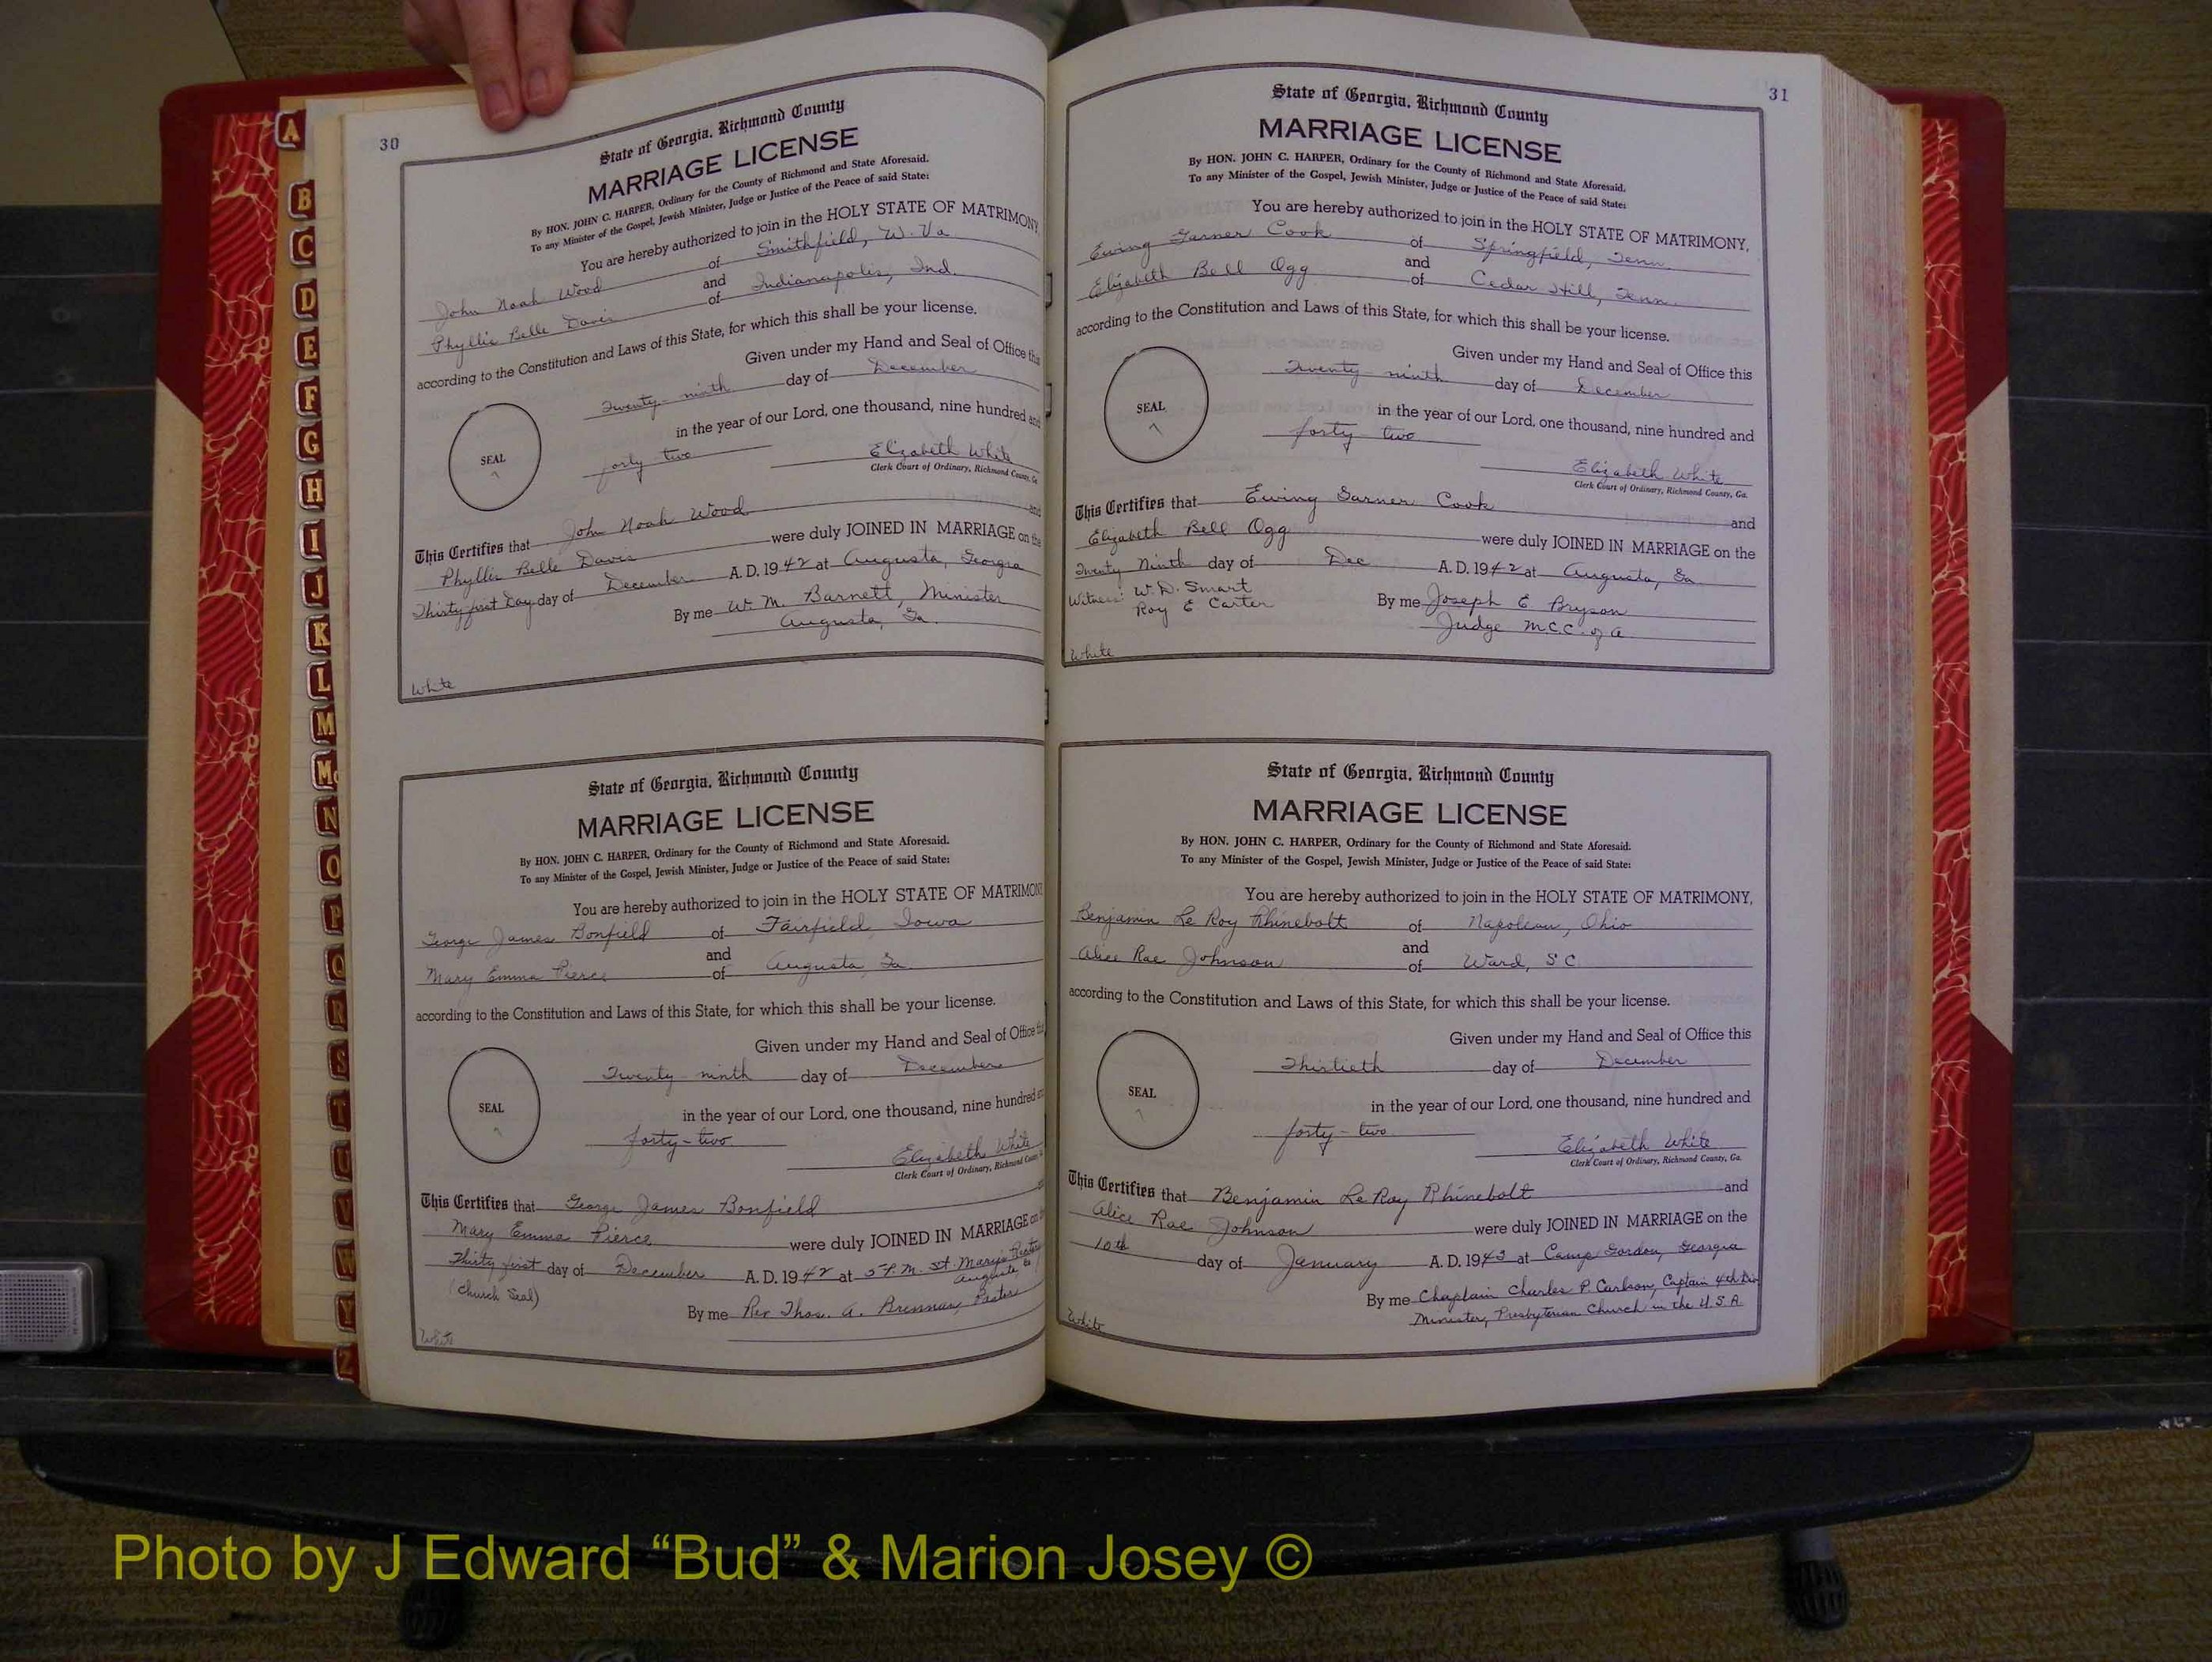 A
B
C
D
E
F
G
H
I
J
K
L
M
Mc
N
O
P
Q
R
S
T
U
V
W
Y
Z
30
State of Georgia, Richmond County
MARRIAGE LICENSE
By HON. JOHN C. HARPER, Ordinary for the County of Richmond and State Aforesaid.
To any Minister of the Gospel, Jewish Minister, Judge or Justice of the Peace of said State:
You are hereby authorized to join in the HOLY STATE OF MATRIMONY,
John Noah Wood of Smithfield, W. Va
and
Phyllis Belle Davis of Indianapolis, Ind.
according to the Constitution and Laws of this State, for which this shall be your license.
Given under my Hand and Seal of Office this
Twenty-ninth day of December
in the year of our Lord, one thousand, nine hundred and
SEAL
forty two Elizabeth White
Clerk Court of Ordinary, Richmond County, Ga
This Certifies that John Noah Wood and
Phyllis Belle Davis were duly JOINED IN MARRIAGE on the
Thirty first Day day of December A. D. 1942 at Augusta, Georgia
By me W. M. Barnett, Minister
Augusta, Ga.
White
State of Georgia, Richmond County
MARRIAGE LICENSE
By HON. JOHN C. HARPER, Ordinary for the County of Richmond and State Aforesaid.
To any Minister of the Gospel, Jewish Minister, Judge or Justice of the Peace of said State:
You are hereby authorized to join in the HOLY STATE OF MATRIMONY
George James Bonfield of Fairfield Iowa
and
Mary Emma Pierce of Augusta, Ga.
according to the Constitution and Laws of this State, for which this shall be your license.
Given under my Hand and Seal of Office this
Twenty ninth day of December
in the year of our Lord, one thousand, nine hundred and
SEAL
forty-two Elizabeth White
Clerk Court of Ordinary, Richmond County
This Certifies that George James Bonfield
Mary Emma Pierce were duly JOINED IN MARRIAGE on
Thirty first day of December A. D. 1942 at 5 P.M. St. Mary's
Augusta
(Church Seal)
By me Rev Thos. A. Brennan, Pastor
White
31
State of Georgia, Richmond County
MARRIAGE LICENSE
By HON. JOHN C. HARPER, Ordinary for the County of Richmond and State Aforesaid.
To any Minister of the Gospel, Jewish Minister, Judge or Justice of the Peace of said State:
You are hereby authorized to join in the HOLY STATE OF MATRIMONY,
Ewing Garner Cook of Springfield, Tenn.
and
Elizabeth Bell Ogg of Cedar Hill, Tenn.
according to the Constitution and Laws of this State, for which this shall be your license.
Given under my Hand and Seal of Office this
Twenty ninth day of December
in the year of our Lord, one thousand, nine hundred and
SEAL
forty two
Elizabeth White
Clerk Court of Ordinary, Richmond County, Ga.
This Certifies that Ewing Garner Cook and
Elizabeth Bell Ogg were duly JOINED IN MARRIAGE on the
Twenty Ninth day of Dec A. D. 1942 at Augusta, Ga
Witness: W. D. Smart
Roy E Carter
By me Joseph E. Bryson
Judge M.C.C. of A.
White
State of Georgia, Richmond County
MARRIAGE LICENSE
By HON. JOHN C. HARPER, Ordinary for the County of Richmond and State Aforesaid.
To any Minister of the Gospel, Jewish Minister, Judge or Justice of the Peace of said State:
You are hereby authorized to join in the HOLY STATE OF MATRIMONY,
Benjamin Le Roy Rhinebolt of Napoleon, Ohio
and
Alice Rae Johnson of Ward, S C.
according to the Constitution and Laws of this State, for which this shall be your license.
Given under my Hand and Seal of Office this
Thirtieth day of December
in the year of our Lord, one thousand, nine hundred and
SEAL
forty-two
Elizabeth White
Clerk Court of Ordinary, Richmond County, Ga.
This Certifies that Benjamin Le Roy Rhinebolt and
Alice Rae Johnson were duly JOINED IN MARRIAGE on the
10th day of January A. D. 1943 at Camp Gordon, Georgia
By me Chaplain Charles P. Carlson, Captain 4th Div
Minister, Presbyterian Church in the U.S.A.
White
Photo by J Edward “Bud” & Marion Josey ©